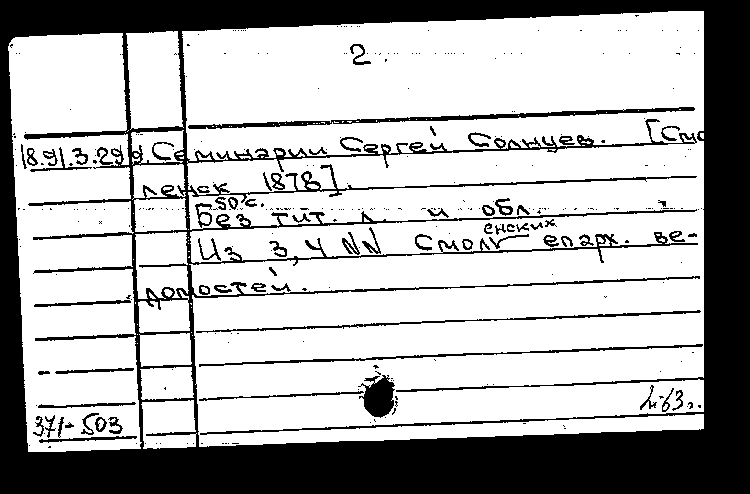 2.
18.91.3.29 д. Семинарии Сергей Солнцев. [Смо
ленск 1878].
50 с.
Без тит. л. и обл.
Из 3, 4 NN Смоленских епарх. ве-
домостей.
371-503